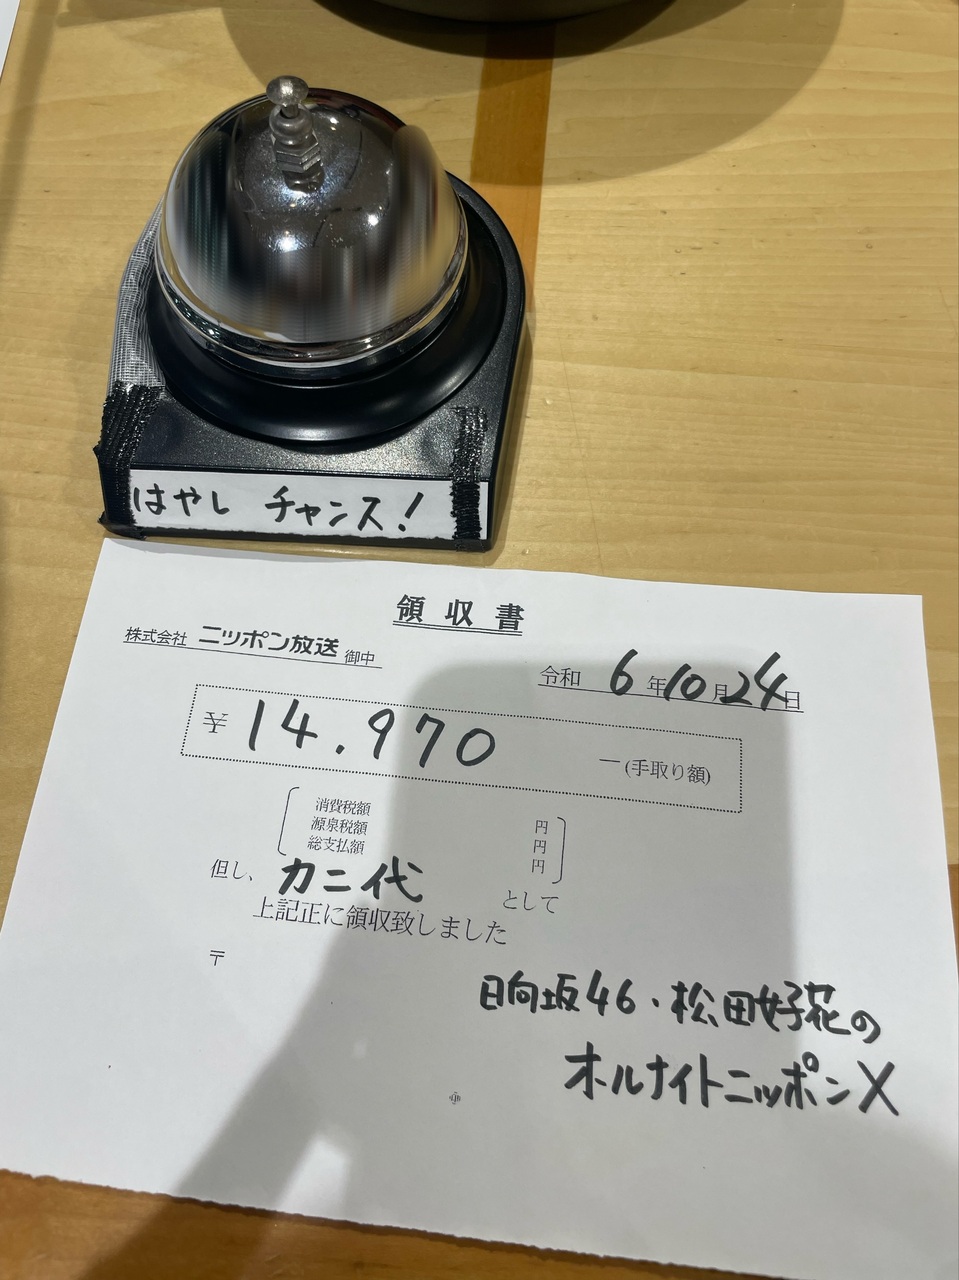 はやし チャンス!
領収書
株式会社 ニッポン放送 御中
令和 6年10月24日
¥14.970 ー(手取り額)
消費税額 円
源泉税額 円
総支払額 円
但し、カニ代 として
上記正に領収致しました
〒
日向坂46・松田好花の
オールナイトニッポンX